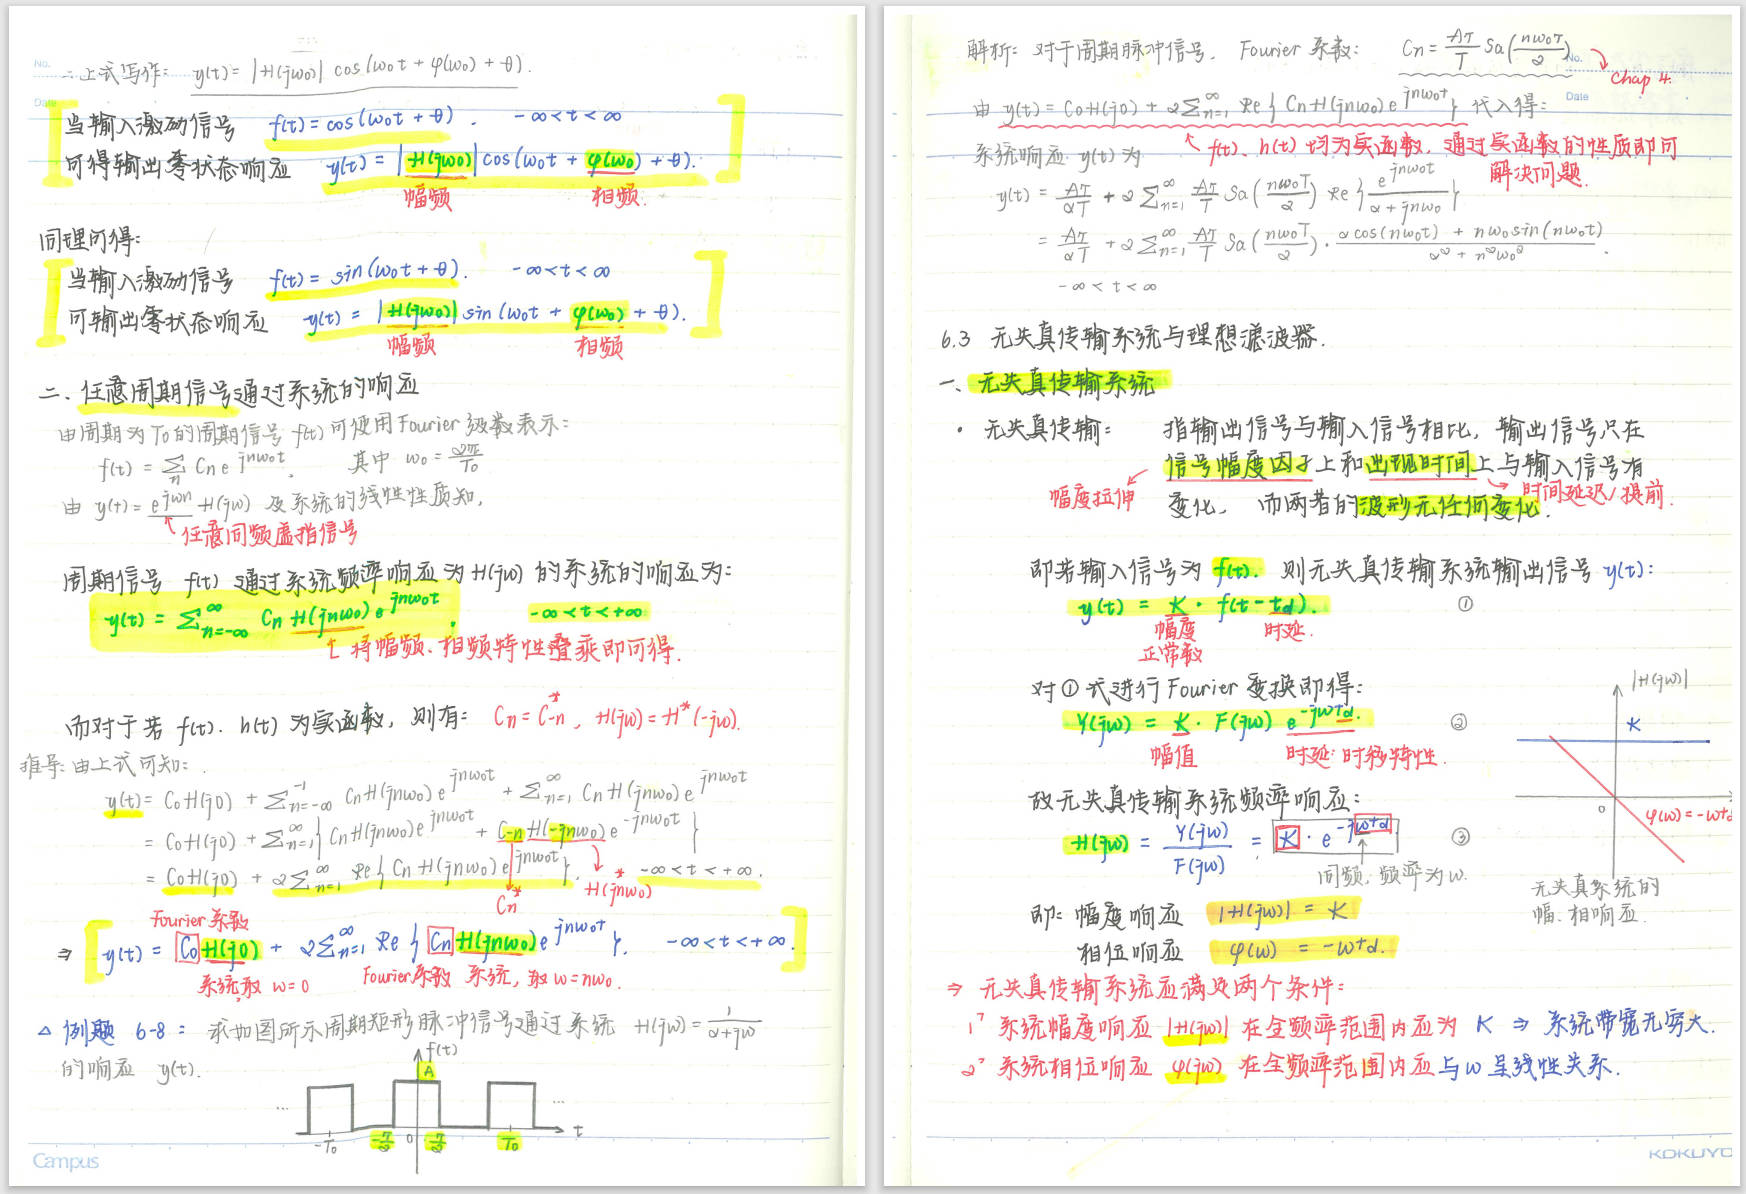 No.
Date
∴上式写作: y(t)=|H(jω₀)| cos(ω₀t + φ(ω₀) + θ).
当输入激励信号 f(t)=cos(ω₀t + θ). -∞<t<∞
可得输出零状态响应 y(t) = |H(jω₀)| cos(ω₀t + φ(ω₀) + θ).
幅频 相频.
同理可得:
当输入激励信号 f(t)= sin(ω₀t+θ). -∞<t<∞
可输出零状态响应 y(t) = |H(jω₀)| sin(ω₀t + φ(ω₀) + θ).
幅频 相频
二、任意周期信号通过系统的响应
由周期为T₀的周期信号 f(t)可使用Fourier级数表示:
f(t) = Σₙ Cn e^{jnω₀t}, 其中 ω₀ = 2π/T₀
由 y(t)= e^{jωn} H(jω) 及系统的线性性质知,
↑任意同频虚指信号
周期信号 f(t) 通过系统频率响应为H(jω)的系统的响应为:
y(t) = Σ_{n=-∞}^{∞} Cn H(jnω₀) e^{jnω₀t}, -∞<t<+∞
↑将幅频、相频特性叠乘即可得.
而对于若 f(t). h(t) 为实函数, 则有: Cn = C*₋n, H(jω)=H*(-jω).
推导: 由上式可知:
y(t)= C₀H(j0) + Σ_{n=-∞}^{-1} CnH(jnω₀) e^{jnω₀t} + Σ_{n=1}^{∞} CnH(jnω₀) e^{jnω₀t}
= C₀H(j0) + Σ_{n=1}^{∞} { CnH(jnω₀)e^{jnω₀t} + C₋nH(-jnω₀)e^{-jnω₀t} }
= C₀H(j0) + 2Σ_{n=1}^{∞} Re{ CnH(jnω₀)e^{jnω₀t} }, -∞<t<+∞.
Cn* H*(jnω₀)
Fourier系数
⇒ y(t) = C₀H(j0) + 2Σ_{n=1}^{∞} Re{ CnH(jnω₀)e^{jnω₀t} }, -∞<t<+∞.
系统,取 ω=0 Fourier系数 系统, 取 ω=nω₀.
△ 例题 6-8: 求如图所示周期矩形脉冲信号通过系统 H(jω)= 1/(α+jω)
的响应 y(t).
f(t)
A
... ...
-T₀ -τ/2 0 τ/2 T₀ t
Campus
解析: 对于周期脉冲信号, Fourier 系数: Cn = Aτ/T Sa(nω₀τ/2)
No.
Chap 4.
Date
由 y(t)= C₀H(j0) + 2Σ_{n=1}^{∞} Re{ CnH(jnω₀)e^{jnω₀t} } 代入得:
↑ f(t)、h(t) 均为实函数, 通过实函数的性质即可
系统响应 y(t)为
解决问题.
y(t) = Aτ/αT + 2Σ_{n=1}^{∞} Aτ/T Sa(nω₀τ/2) Re{ e^{jnω₀t}/(α+jnω₀) }
= Aτ/αT + 2Σ_{n=1}^{∞} Aτ/T Sa(nω₀τ/2) · (α cos(nω₀t) + nω₀ sin(nω₀t))/(α²+n²ω₀²).
-∞<t<∞
6.3 无失真传输系统与理想滤波器.
一、无失真传输系统
· 无失真传输: 指输出信号与输入信号相比, 输出信号只在
信号幅度因子上和出现时间上与输入信号有
幅度拉伸 时间延迟/提前.
变化, 而两者的波形无任何变化.
即若输入信号为 f(t). 则无失真传输系统输出信号 y(t):
y(t) = K · f(t-td). ①
幅度 时延.
正常数
对①式进行Fourier变换即得:
Y(jω) = K · F(jω) e^{-jωtd}. ②
幅值 时延: 时移特性.
|H(jω)|
K
0
φ(ω)=-ωtd
故无失真传输系统频率响应:
H(jω) = Y(jω)/F(jω) = K · e^{-jωtd} ③
同频, 频率为ω.
无失真系统的
幅、相响应.
即: 幅度响应 |H(jω)| = K
相位响应 φ(ω) = -ωtd.
⇒ 无失真传输系统应满足两个条件:
1° 系统幅度响应 |H(jω)| 在全频率范围内应为 K ⇒ 系统带宽无穷大.
2° 系统相位响应 φ(jω) 在全频率范围内应与ω呈线性关系.
KOKUYO